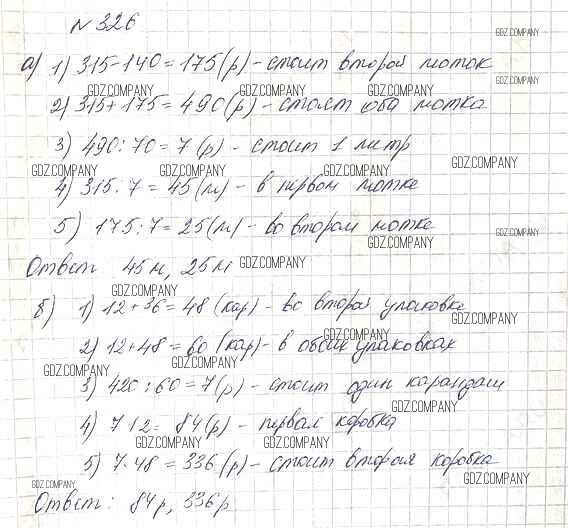 № 326
GDZ.COMPANY
а) 1) 315-140=175(р)-стоит второй моток
GDZ.COMPANY GDZ.COMPANY GDZ.COMPANY GDZ.COMPANY
2) 315+175=490(р)-стоят оба мотка
3) 490:70=7(р)-стоит 1 литр
GDZ.COMPANY GDZ.COMPANY GDZ.COMPANY GDZ.COMPANY
4) 315:7=45(м)-в первом мотке
5) 175:7=25(м)-во втором мотке
GDZ.COMPANY GDZ.COMPANY
Ответ: 45м, 25м GDZ.COMPANY
GDZ.COMPANY
б) 1) 12+36=48(кар)-во второй упаковке
GDZ.COMPANY
2) 12+48=60(кар)-в обеих упаковках
GDZ.COMPANY GDZ.COMPANY GDZ.COMPANY
3) 420:60=7(р)-стоит один карандаш
GDZ.COMPANY
4) 7·12=84(р)-первая коробка
GDZ.COMPANY GDZ.COMPANY
5) 7·48=336(р)-стоит вторая коробка
GDZ.COMPANY GDZ.COMPANY
Ответ: 84р, 336р